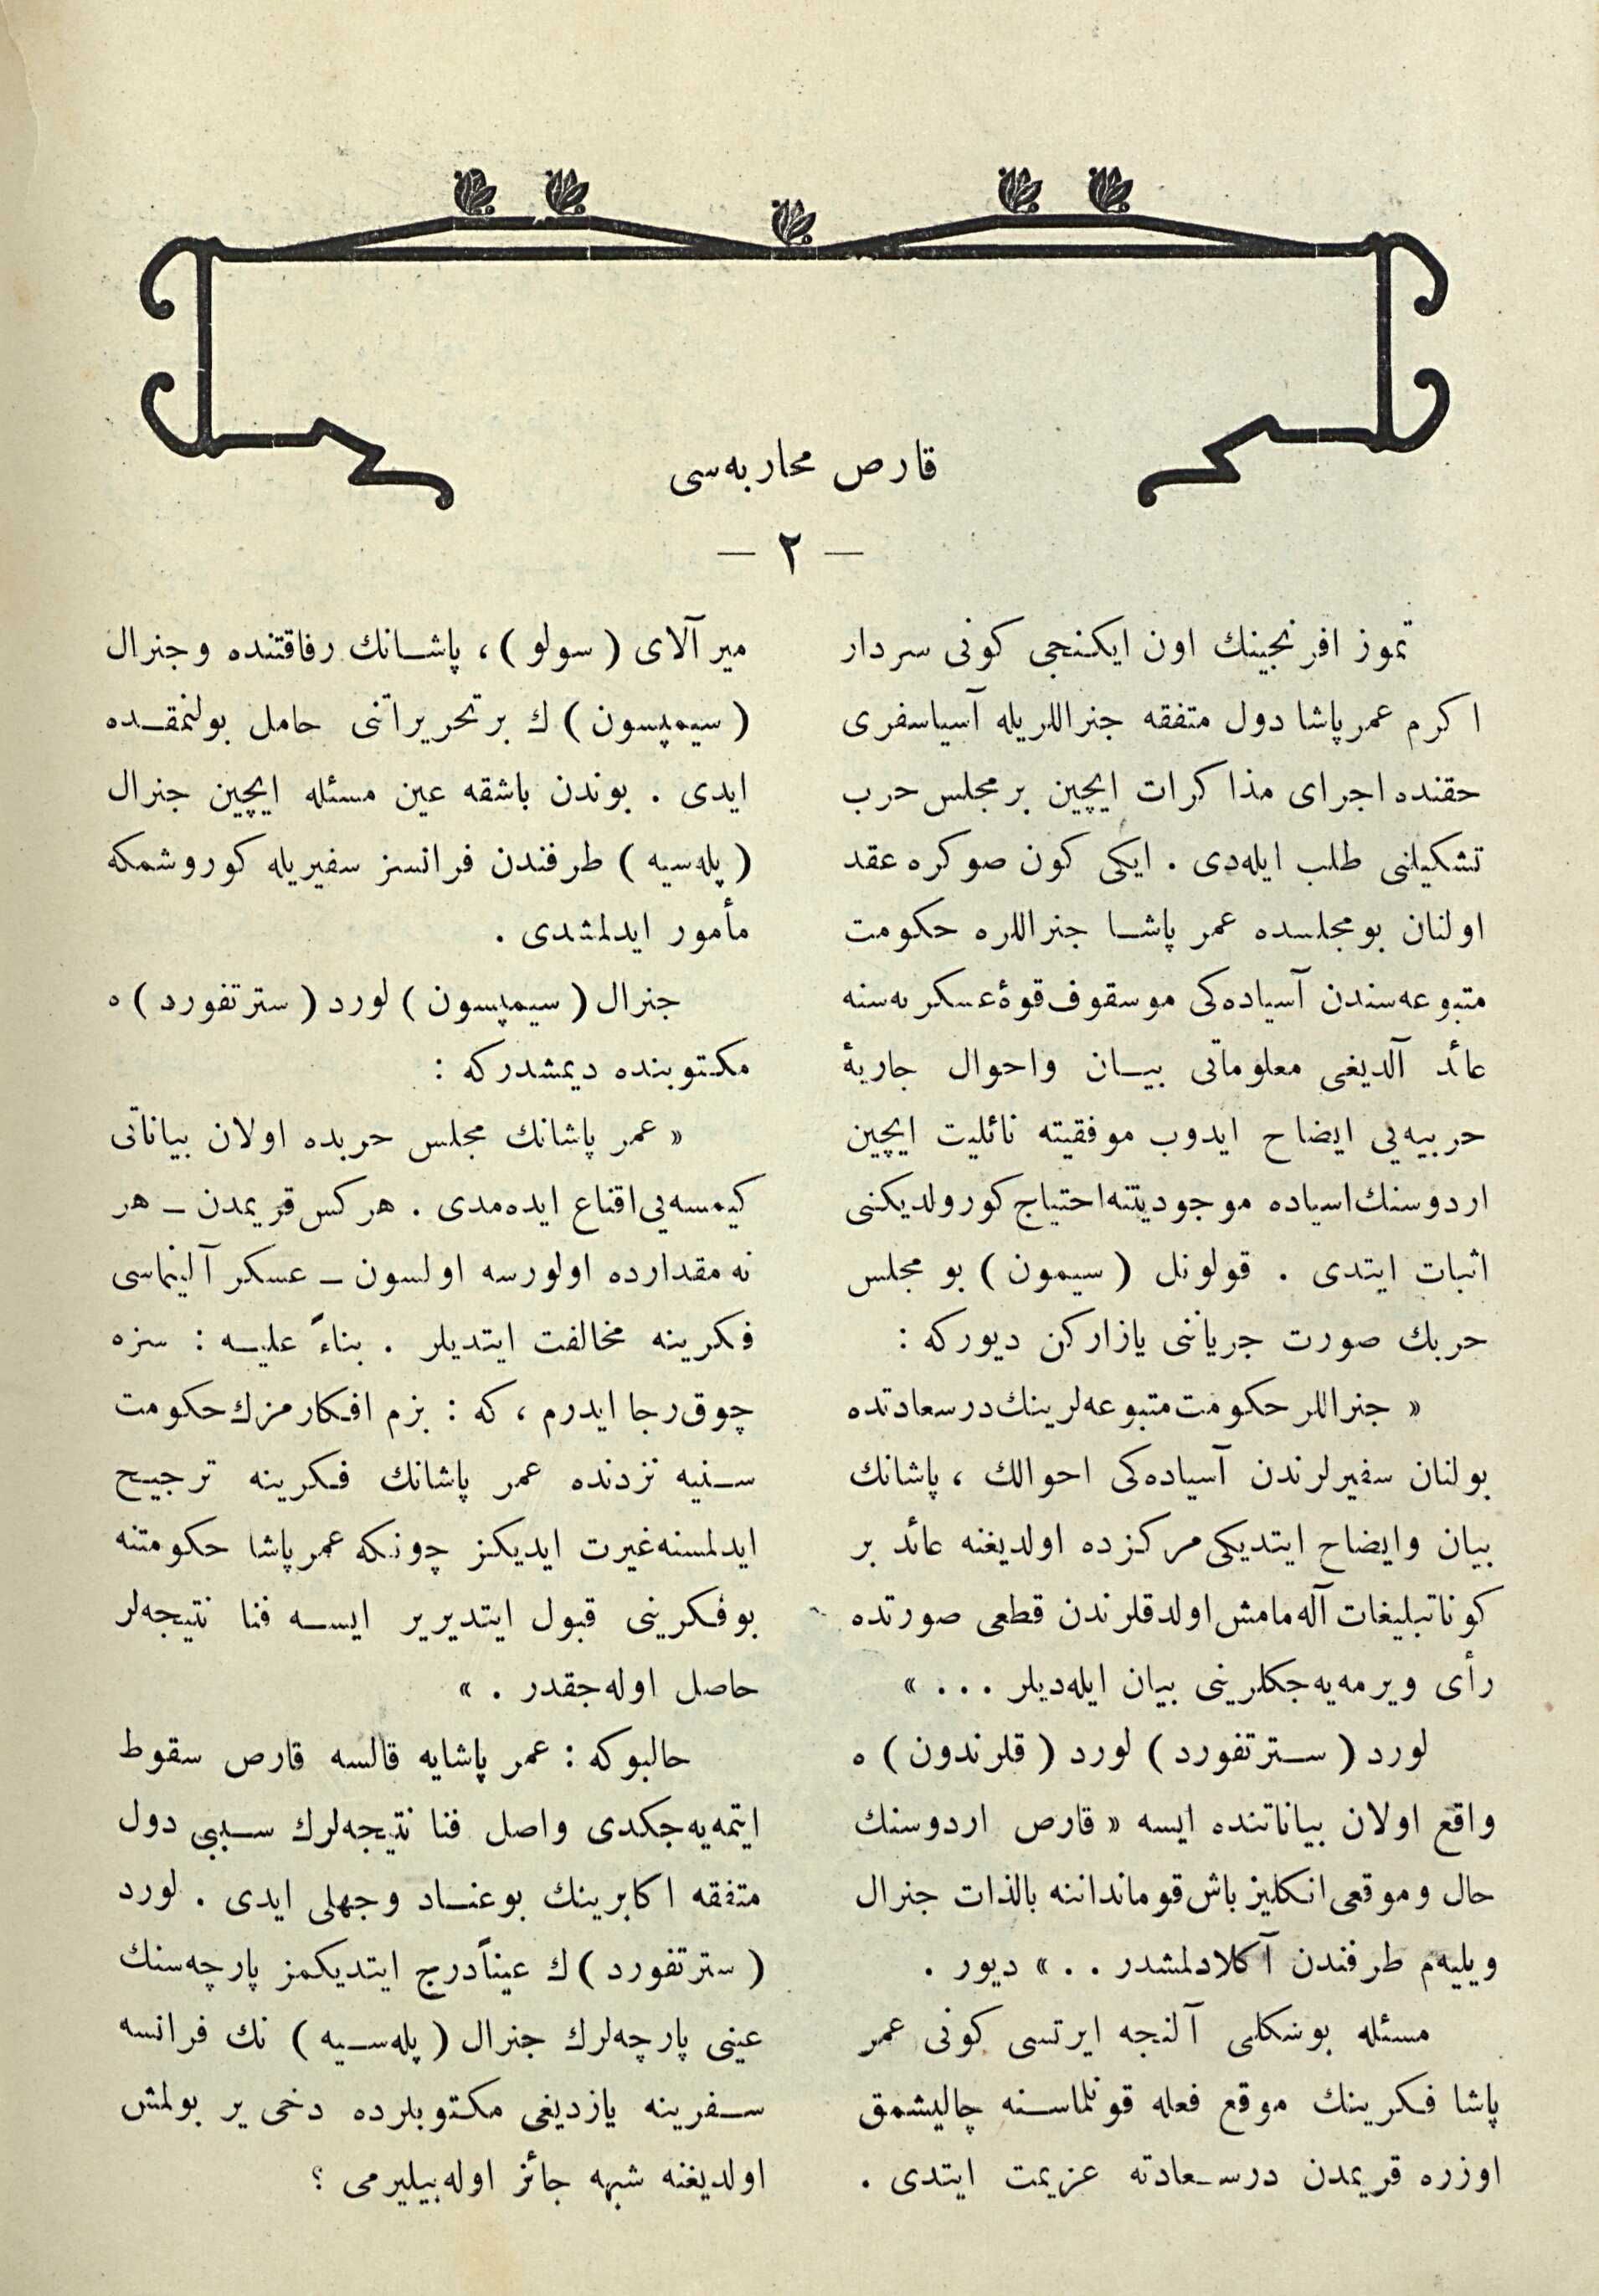 قارص محاربه‌سی
— ٢ —
تموز افرنجینك اون ایكنجی كونی سردار
اكرم عمرپاشا دول متفقه جنراللریله آسیاسفری
حقنده اجرای مذاكرات ایچین برمجلس حرب
تشكیلنی طلب ایله‌دی . ایكی كون صوكره عقد
اولنان بومجلسده عمر پاشا جنراللره حكومت
متبوعه‌سندن آسیاده‌كی موسقوف قوهٔ عسكریه‌سنه
عائد آلدیغی معلوماتی بیان واحوال جاریهٔ
حربیه‌یی ایضاح ایدوب موفقیته نائلیت ایچین
اردوسنك اسیاده موجودیتنه احتیاج كورولدیكنی
اثبات ایتدی . قولونل (سیمون) بو مجلس
حربك صورت جریاننی یازاركن دیوركه :
« جنراللر حكومت متبوعه‌لرینك درسعادتده
بولنان سفیرلرندن آسیاده‌كی احوالك ، پاشانك
بیان وایضاح ایتدیكی مركزده اولدیغنه عائد بر
كونا تبلیغات آله‌مامش اولدقلرندن قطعی صورتده
رأی ویرمه‌یه‌جكلرینی بیان ایله‌دیلر . . . »
لورد (سترتفورد) لورد (قلرندون) ه
واقع اولان بیاناتنده ایسه « قارص اردوسنك
حال وموقعی انكلیز باش قومانداننه بالذات جنرال
ویلیه‌م طرفندن آكلادلمشدر . . » دیور .
مسئله بوشكلی آلنجه ایرتسی كونی عمر
پاشا فكرینك موقع فعله قونلماسنه چالیشمق
اوزره قریمدن درسعادته عزیمت ایتدی .
میرآلای (سولو) ، پاشانك رفاقتنده وجنرال
(سیمپسون) ك برتحریراتنی حامل بولنمقده
ایدی . بوندن باشقه عین مسئله ایچین جنرال
(پله‌سیه) طرفندن فرانسز سفیریله كوروشمكه
مأمور ایدلمشدی .
جنرال (سیمپسون) لورد (سترتفورد) ه
مكتوبنده دیمشدركه :
« عمر پاشانك مجلس حربده اولان بیاناتی
كیمسه‌یی اقناع ایده‌مدی . هركس قریمدن ـ هر
نه مقدارده اولورسه اولسون ـ عسكر آلینماسی
فكرینه مخالفت ایتدیلر . بناءً علیه : سزه
چوق رجا ایدرم ، كه : بزم افكارمزك حكومت
سنیه نزدنده عمر پاشانك فكرینه ترجیح
ایدلمسنه غیرت ایدیكز چونكه عمرپاشا حكومتنه
بوفكرینی قبول ایتدیریر ایسه فنا نتیجه‌لر
حاصل اوله‌جقدر . »
حالبوكه : عمر پاشایه قالسه قارص سقوط
ایتمه‌یه‌جكدی واصل فنا نتیجه‌لرك سببی دول
متفقه اكابرینك بوعناد وجهلی ایدی . لورد
(سترتفورد) ك عیناً درج ایتدیكمز پارچه‌سنك
عینی پارچه‌لرك جنرال (پله‌سیه) نك فرانسه
سفرینه یازدیغی مكتوبلرده دخی یر بولمش
اولدیغنه شبهه جائز اوله‌بیلیرمی ؟